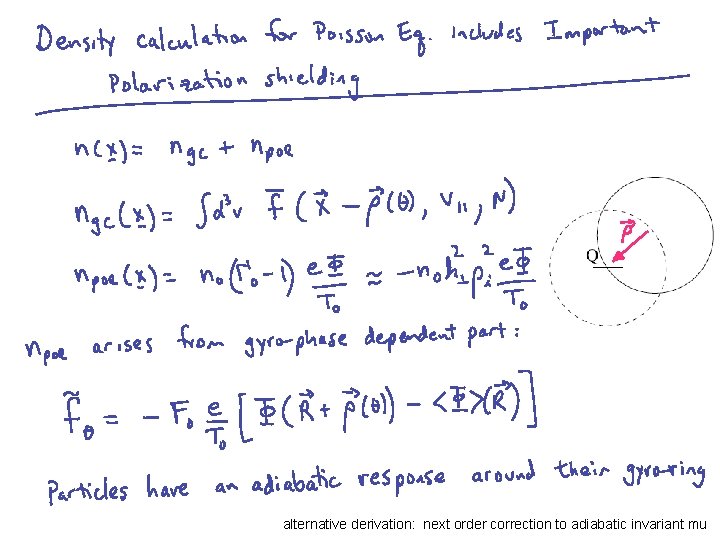 Density calculation for Poisson Eq. includes Important
Polarization shielding
n(x) = n_gc + n_pol
n_gc(x) = ∫d³v f̄ (x⃗ − ρ⃗(θ), v_||, μ)
n_pol(x) = n₀(Γ₀ − 1) eΦ/T₀ ≈ −n₀k_⊥²ρ_i² eΦ/T₀
ρ⃗
Q
n_pol arises from gyro-phase dependent part:
f̃_θ = − F₀ e/T₀ [Φ(R⃗ + ρ⃗(θ)) − <Φ>(R⃗)]
Particles have an adiabatic response around their gyro-ring
alternative derivation: next order correction to adiabatic invariant mu